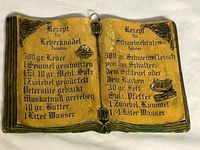 Rezept
für
Leberknödel
500 gr. Leber
1 Semmel geschnitten
1 Ei, 10 gr. Mehl, Salz
1 Zwiebel gedämpft
Petersilie gehackt
Muskatnuß gerieben
40 gr. Butter
1 Liter Wasser
Rezept
für
Schweinebraten
500 gr. Schweinefleisch
von der Schulter,
dem Schlegel oder
den Rücken
30 gr. Fett
Salz, Pfeffer
1 Zwiebel, Kümmel
1/4 Liter Wasser